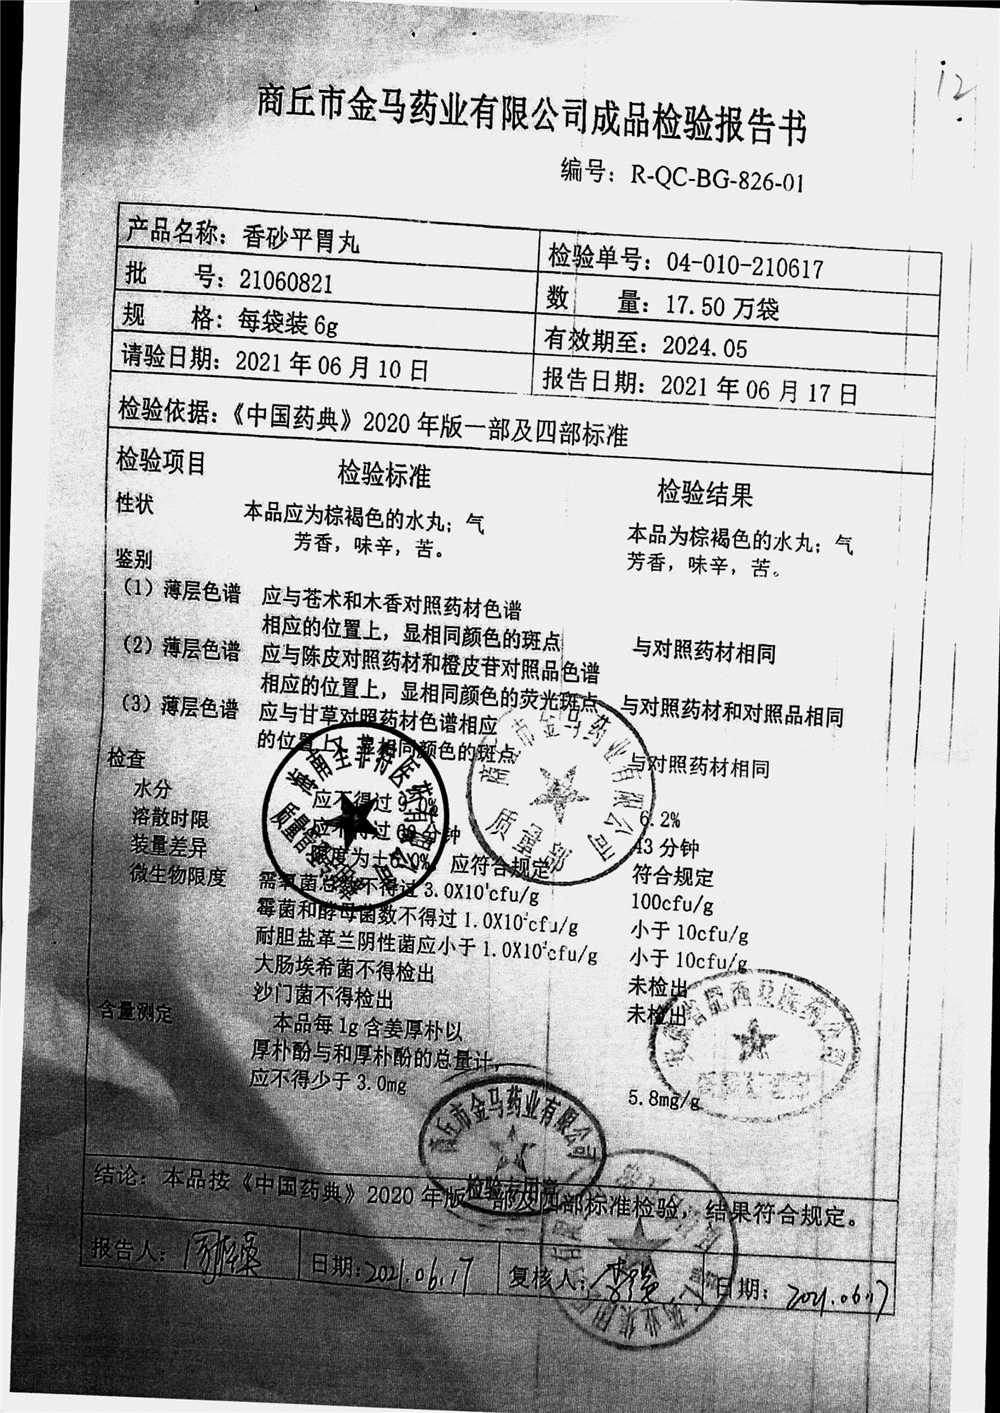 12
商丘市金马药业有限公司成品检验报告书
编号：R-QC-BG-826-01
产品名称：香砂平胃丸
检验单号：04-010-210617
批 号：21060821
数 量：17.50 万袋
规 格：每袋装 6g
有效期至：2024.05
请验日期：2021 年 06 月 10 日
报告日期：2021 年 06 月 17 日
检验依据：《中国药典》2020 年版一部及四部标准
检验项目 检验标准 检验结果
性状 本品应为棕褐色的水丸；气 本品为棕褐色的水丸；气
芳香，味辛，苦。 芳香，味辛，苦。
鉴别
（1）薄层色谱 应与苍术和木香对照药材色谱
相应的位置上，显相同颜色的斑点 与对照药材相同
（2）薄层色谱 应与陈皮对照药材和橙皮苷对照品色谱
相应的位置上，显相同颜色的荧光斑点 与对照药材和对照品相同
（3）薄层色谱 应与甘草对照药材色谱相应
的位置上，显相同颜色的斑点 与对照药材相同
检查
水分 应不得过 9.0% 6.2%
溶散时限 应不得过 60 分钟 43 分钟
装量差异 限度为±6.0% 应符合规定 符合规定
微生物限度 需氧菌总数不得过 3.0X10 cfu/g 100cfu/g
霉菌和酵母菌数不得过 1.0X10²cfu/g 小于 10cfu/g
耐胆盐革兰阴性菌应小于 1.0X10²cfu/g 小于 10cfu/g
大肠埃希菌不得检出 未检出
沙门菌不得检出 未检出
含量测定 本品每 1g 含姜厚朴以
厚朴酚与和厚朴酚的总量计，
应不得少于 3.0mg 5.8mg/g
商丘市金马药业有限公司
质量部
商丘市金马药业有限公司
检验专用章
结论：本品按《中国药典》2020 年版一部及四部标准检验，结果符合规定。
报告人： 日期：2021.06.17 复核人： 日期：2021.06.17